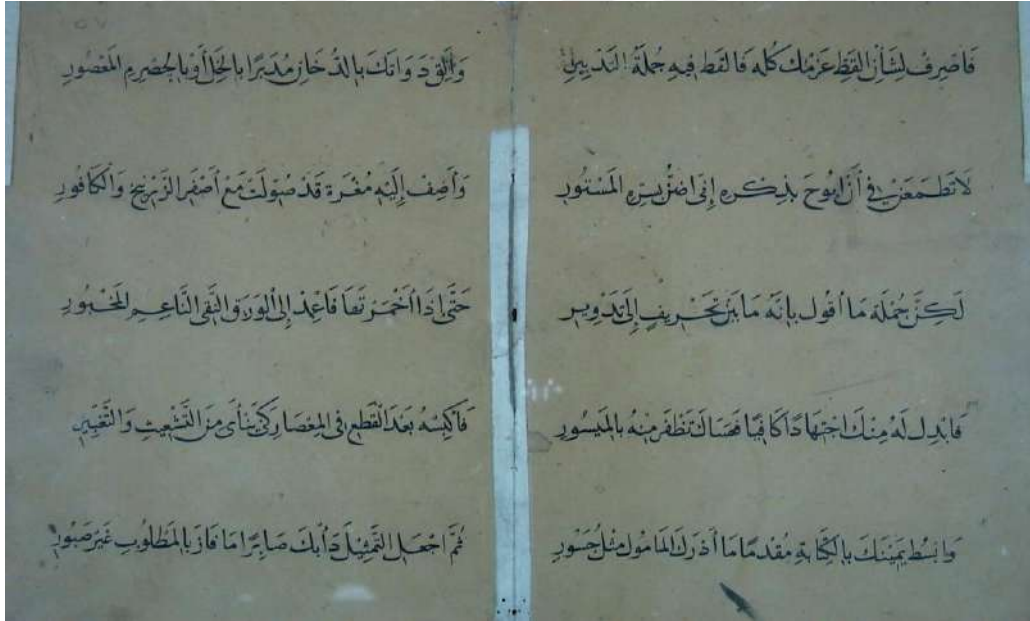 فَاصْرِف لِشَأنِ القَطِّ عَزْمَكَ كُلَّه فَالقَطُّ فيهِ جُملَةُ التَدْبِيرِ
لَا تَطمَعَنْ في أَنْ ابُوحَ بذِكره إِنى اضنُّ بِسرِه المَسْتُورِ
لَكِنَّ جُمْلَة مَا أقُولُ بِانَّه مَا بَيْنَ تَحْرِيفٍ إِلَى تَدْوِيرِ
فَابْذِل لَهُ مِنكَ اجْتِهَادًا كَافيًا فَعَسَاكَ تَظْفَر مِنْهُ بِالمَيسُورِ
وَابْسُط يَمِيْنَكَ بِالكِتَابَةِ مُقْدِمًا مَا أَدْرَكَ المَامُولَ مِثْلُ جَسُورِ
وَأَلِقْ دَوَاتَكَ بِالدُّخَانِ مُدَبِّرًا بِالخَلِّ أَوْ بِالحِصْرِمِ المَعْصُورِ
وَأَضِف إِلَيْهِ مُغْرَة قَدْ صُوِّلَتْ مَعْ أَصْفَرِ الزَّرْنِيخِ وَالكَافُورِ
حَتَّى إِذَا اخْمَرْتَهَا فَاعْمِدْ إِلَى الوَرَقِ النَّقِى النَّاعِمِ المَخْبُورِ
فَاكْبِسْهُ بَعْدَ القَطْعِ فِى المِعْصَارِ كَىْ يَنْأَى مِنَ التَّشْعِيثِ وَالتَّغْيِيرِ
ثُمَّ اجْعَلِ التَّمْثِيْلَ دَأْبَكَ صَابِرًا مَا فَازَ بِالمَطْلُوبِ غَيْرُ صَبُورِ